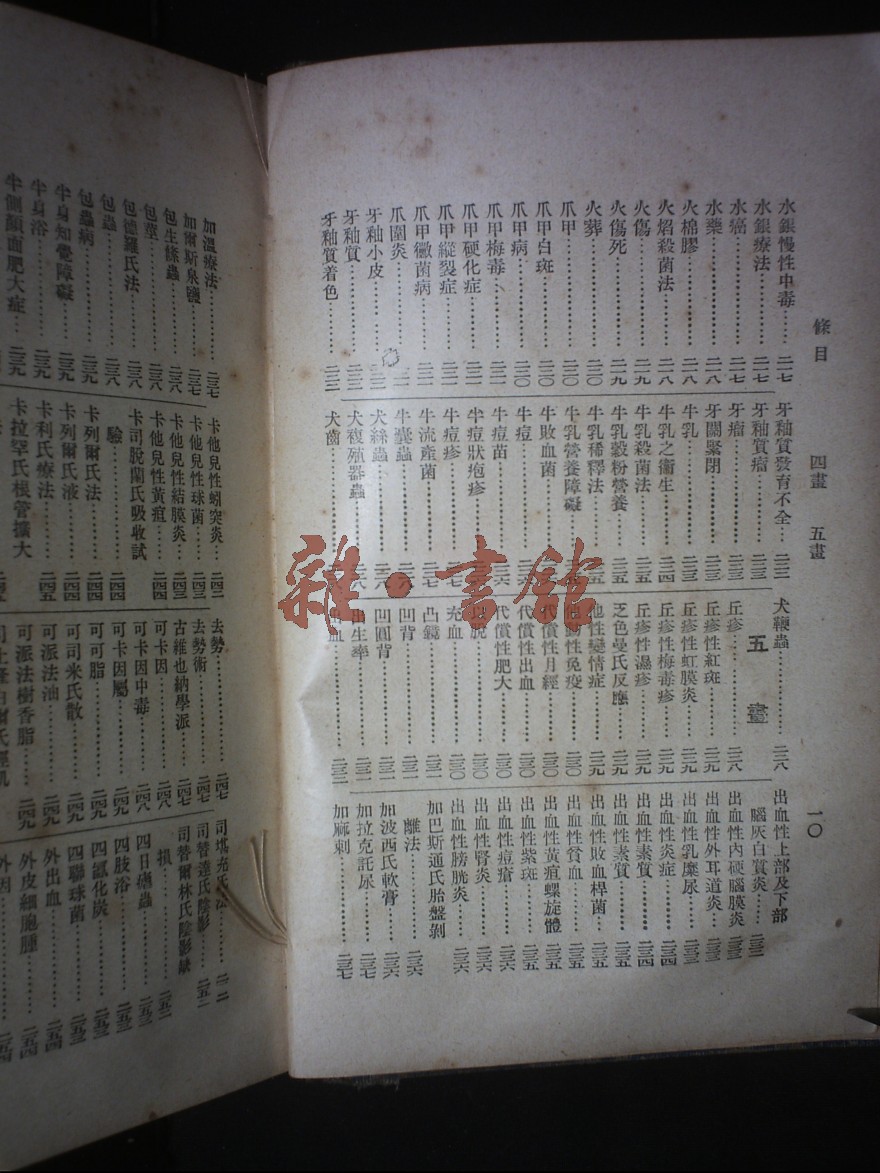 條目 四畫 五畫 一〇
水銀慢性中毒……二一七
水銀療法……二一七
水癌……二一七
水藥……二一八
火棉膠……二一八
火焰殺菌法……二一八
火傷……二一九
火傷死……二一九
火葬……二二〇
爪甲……二二〇
爪甲白斑……二二〇
爪甲病……二二〇
爪甲梅毒……二二一
爪甲硬化症……二二一
爪甲縱裂症……二二一
爪甲黴菌病……二二一
爪圍炎……
牙釉小皮……
牙釉質……二二二
牙釉質着色……二二二
牙釉質發育不全……二二二
牙釉質瘤……二二三
牙瘤……二二三
牙關緊閉……二二三
牛乳……二二三
牛乳之衞生……二二四
牛乳殺菌法……二二五
牛乳穀粉營養……二二五
牛乳稀釋法……
牛乳營養障礙……
牛敗血菌……
牛痘……
牛痘苗……
牛痘狀疱疹……
牛痘疹……二二七
牛流產菌……二二七
牛囊蟲……二二八
犬絲蟲……二二八
犬複殖器蟲……
犬齒……
犬鞭蟲……二二八
五畫
丘疹……二二八
丘疹性紅斑……二二九
丘疹性虹膜炎……二二九
丘疹性梅毒疹……二二九
丘疹性濕疹……二二九
乏色曼氏反應……二二九
他性戀情症……二二九
他動性免疫……二三〇
代償性月經……二三〇
代償性出血……二三〇
代償性肥大……二三〇
脫……二三〇
充血……二三〇
凸鏡……二三一
凹背……二三一
凹圓背……二三一
出生率……二三一
出血……二三一
出血性上部及下部
腦灰白質炎……二三二
出血性內硬腦膜炎……二三三
出血性外耳道炎……二三三
出血性乳糜尿……二三三
出血性炎症……二三四
出血性素質……二三四
出血性素質……二三五
出血性敗血桿菌……二三五
出血性貧血……二三五
出血性黃疸螺旋體……二三五
出血性紫斑……二三五
出血性痘瘡……二三六
出血性腎炎……二三六
出血性膀胱炎……二三六
加巴斯通氏胎盤剝
離法……二三六
加波西氏軟膏……二三六
加拉克託尿……二三七
加麻剌……二三七
加溫療法……二三七
加爾斯泉鹽……二三七
包生絛蟲……二三八
包莖……二三八
包德羅氏法……二三八
包蟲……二三八
包蟲病……二三九
半身知覺障礙……二三九
半身浴……二三九
半側顏面肥大症……二三九
卡他兒性蚓突炎……二四三
卡他兒性球菌……二四三
卡他兒性結膜炎……二四三
卡他兒性黃疸……二四四
卡司脫蘭氏吸收試
驗……二四四
卡列爾氏法……二四四
卡列爾氏液……二四四
卡利氏療法……二四五
卡拉罕氏根管擴大
去勢……二四七
去勢術……二四七
古維也納學派……二四七
可卡因……二四八
可卡因中毒……二四八
可卡因屬……二四九
可可脂……二四九
可司米氏散……二四九
可派法油……二四九
可派法樹香脂……二四九
司替達氏陰影……二五一
司替爾林氏陰影線
損……二五二
四日瘧蟲……二五二
四肢浴……二五三
四氯化炭……二五三
四聯球菌……二五三
外出血……二五四
外皮細胞腫……二五四
外因……二五四
雜·書館